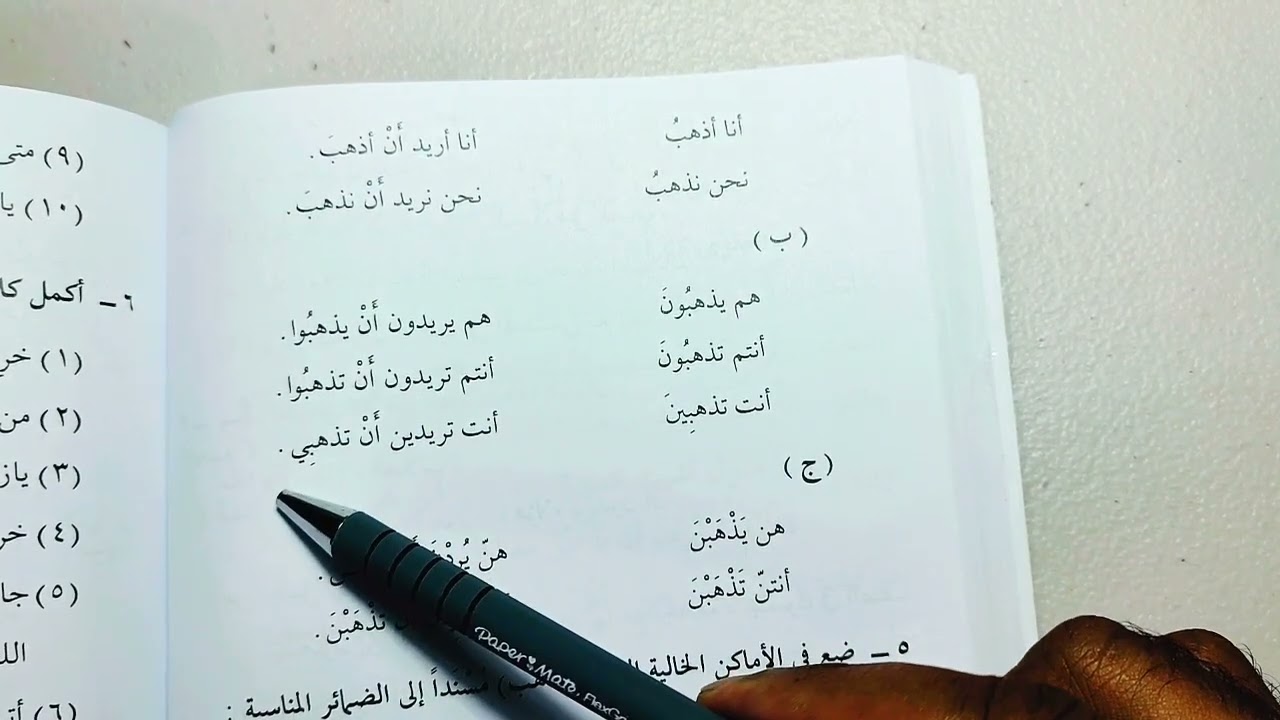 أنا أذهبُ أنا أريد أَنْ أذهبَ.
نحن نذهبُ نحن نريد أَنْ نذهبَ.
(ب)
هم يذهبُونَ هم يريدون أَنْ يذهبُوا.
أنتم تذهبُونَ أنتم تريدون أَنْ تذهبُوا.
أنت تذهبِينَ أنت تريدين أَنْ تذهبِي.
(ج)
هن يَذْهَبْنَ هنّ
أنتنّ تَذْهَبْنَ تَذْهَبْنَ.
٥ - ضع في الأماكن الخالية
مُسْنَداً إلى الضمائر المناسبة :
(٩) متى
(١٠) يا
٦ - أكمل
(١)
(٢) من
(٣)
(٤)
(٥)
(٦)
Paper Mate. FlexG